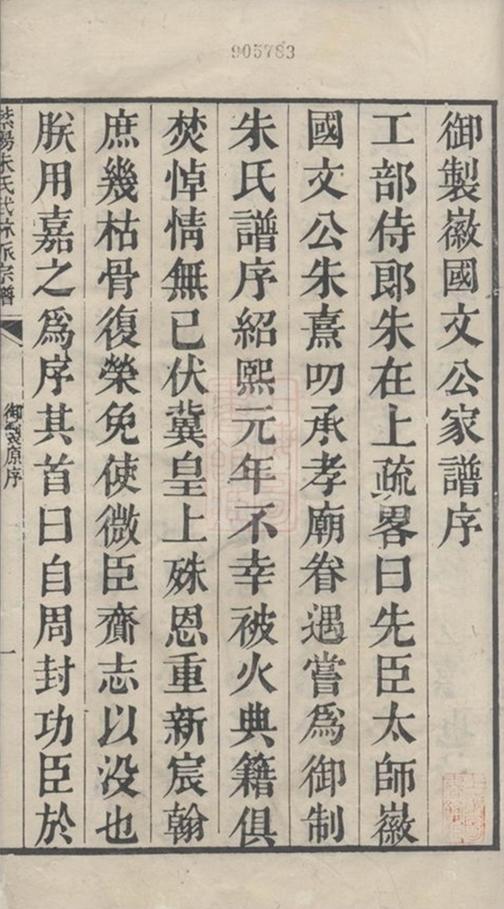 905783
御製徽國文公家譜序
工部侍郎朱在上疏畧曰先臣太師徽
國文公朱熹叨承孝廟眷遇嘗爲御制
朱氏譜序紹熙元年不幸被火典籍俱
焚悼情無已伏冀皇上殊恩重新宸翰
庶幾枯骨復榮免使微臣齎志以没也
朕用嘉之爲序其首曰自周封功臣於
紫陽朱氏
派宗譜
御製原序
一